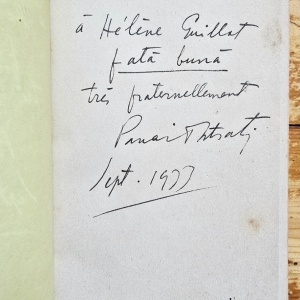 à Hélène Guillot
fată bună
très fraternellement
Panait Istrati
Sept. 1933